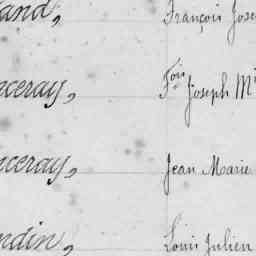 and, François Jose
nceray, Fois Joseph M
nceray, Jean Marie
ndin, Louis Julien